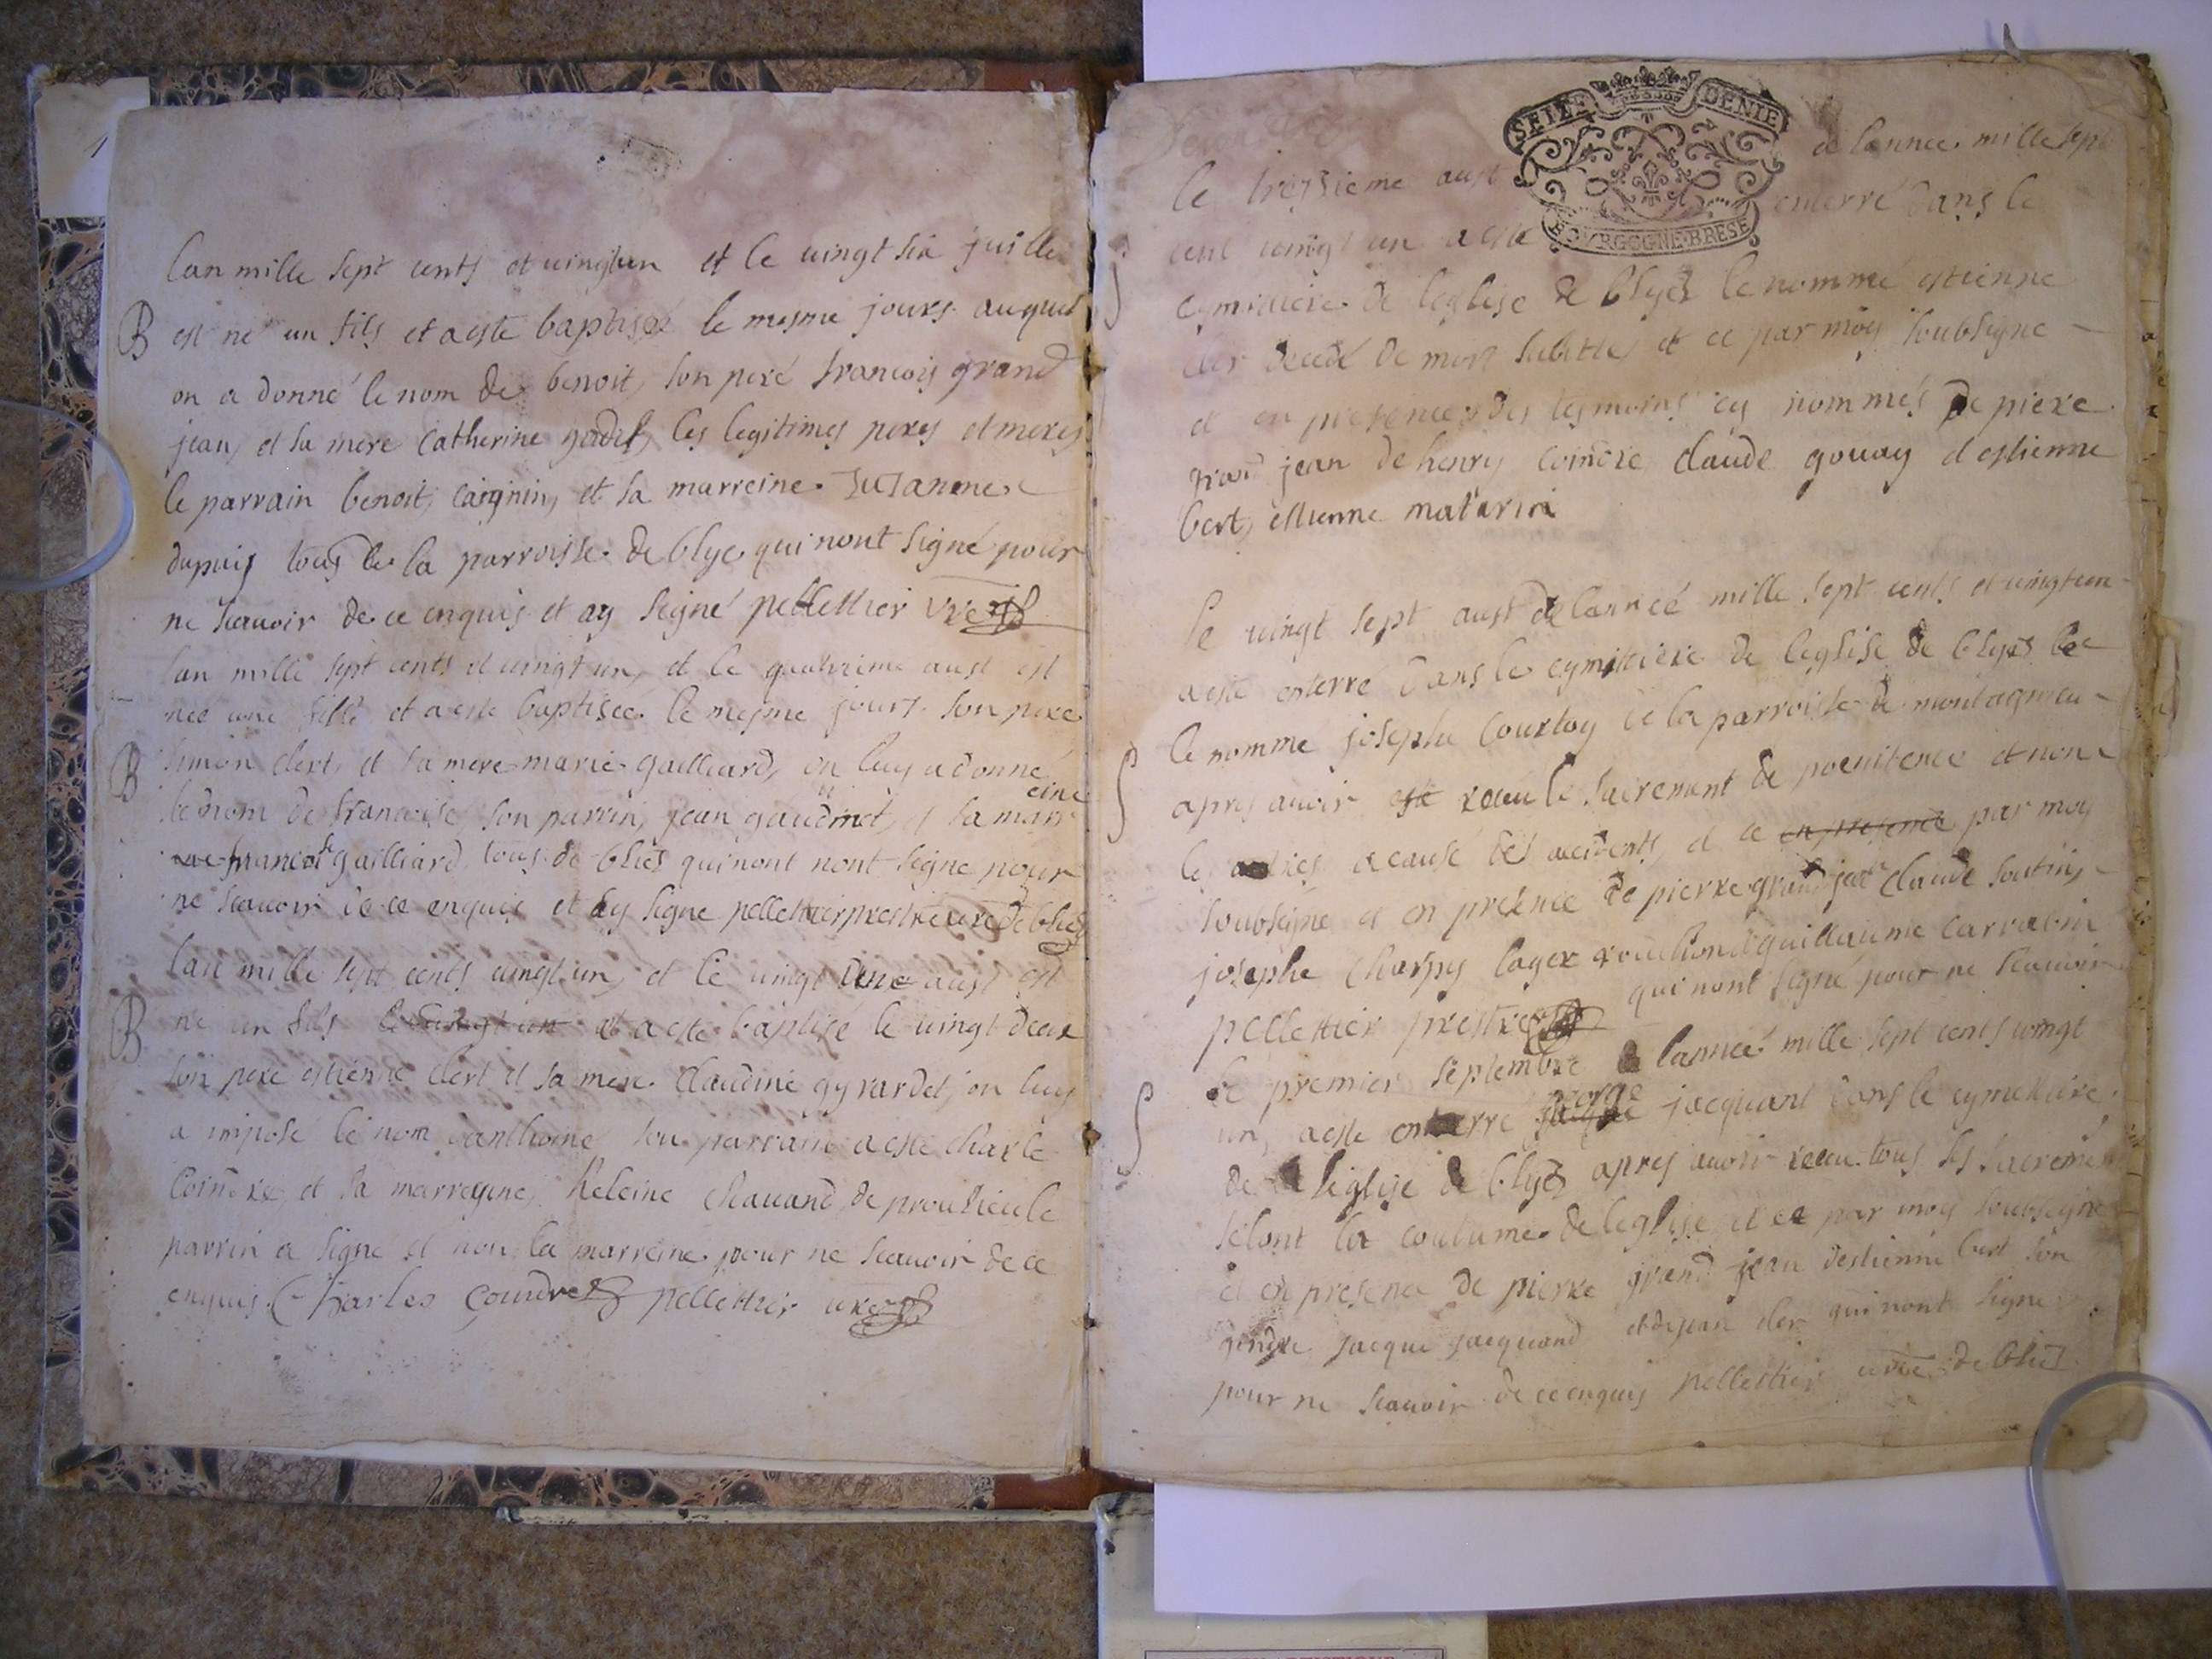 lan mille sept cents et vingtun et le vingt six juille
B est né un fils et a este baptisé le mesme jours auquel
on a donné le nom de benoit, son peré francois grand
jean, et sa mere Catherine les legitimes peres et meres
le parrain benoit, et sa marreine Suzanne
dupuis tous de la parroisse de blye qui nont signé pour
ne scavoir de ce enquis et ay signé pellettier
lan mille sept cents et vingt un, et le quatrieme aust est
neé une fille et a este baptisée le mesme jours son pere
B simon clert, et sa mere marie gailliard, on luy a donné
le nom de francoise, son parrin, jean et sa marr eine
francoise gailliard tous de blies qui nont nont signe pour
ne scavoir de ce enquis et ay signe pellettier prestre cure de blies
lan mille sept cents vingt un, et le vingt une aust est
B né un fils le vingt un et a este baptise le vingt deux
son pere estienne clert et sa mere claudine gyrardet, on luy
a imposé le nom danthoine son parrain a este charle
Coindre et sa marreyne, heleine chavand de proulieu le
parrin a signé et non la marreine pour ne scavoir de ce
enquis Charles Coindre pellettier cure
SEIZE DENIE
BOURGOGNE·BRESE
le treisieme aust de lannee mille sept
cent vingt un a este enterré dans le
cymittiere de leglise de blyes le nommé estienne
decedé de mort subitte, et ce par moy soubsigne
et en presence des tesmoins cy nommés de piere
grand jean de henry coindre claude gouay destienne
bert, estienne matarin
le vingt sept aust de lanneé mille sept cents et vingtun
a este enterre dans le cymittiere de leglise de blyes
S le nomme josephe Courtoy de la parroisse de montagnieu
apres avoir esté receu le sacrement de poenitence et non
les autres a cause des accidents, et ce en presence par moy
soubsigne et en presence de pierre grand jean claude
josephe Charpy guillaume
pellettier prestre qui nont signé pour ne scavoir
S le premier septembre lanneé mille sept cents vingt
un, a este enterré george jacquant dans le cymettiere
de leglise de blyes apres avoir receu tous les sacrements
selont la coutume de leglise et ce par moy soubsigne
et en presence de pierre grand jean destienne bert son
gendre jacque jacquand et de jean cler qui nont signe
pour ne scavoir de ce enquis pellettier curé de blies